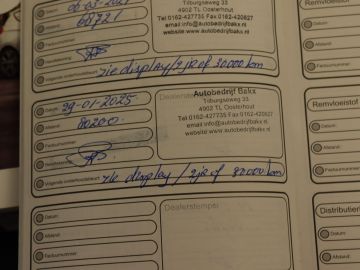 68721
Tilburgseweg 33
4902 TL Oosterhout
Tel 0162-427735 Fax 0162-420827
email info@autobedrijfbakx.nl
website www.autobedrijfbakx.nl
Handtekening:
Volgende onderhoudsbeurt: zie display / 2 jr of 30000 km
Remvloeistof
Datum:
Afstand:
Datum: 29-01-2025
Afstand: 80200
Factuurnummer:
Handtekening:
Volgende onderhoudsbeurt: zie display / 2 jr of 30000 km
Dealerstempel
Autobedrijf Bakx
Tilburgseweg 33
4902 TL Oosterhout
Tel 0162-427735 Fax 0162-420827
email info@autobedrijfbakx.nl
website www.autobedrijfbakx.nl
Remvloeistof
Datum:
Afstand:
Datum:
Afstand:
Factuurnummer:
Dealerstempel
Distributieri
Datum:
Afstand: